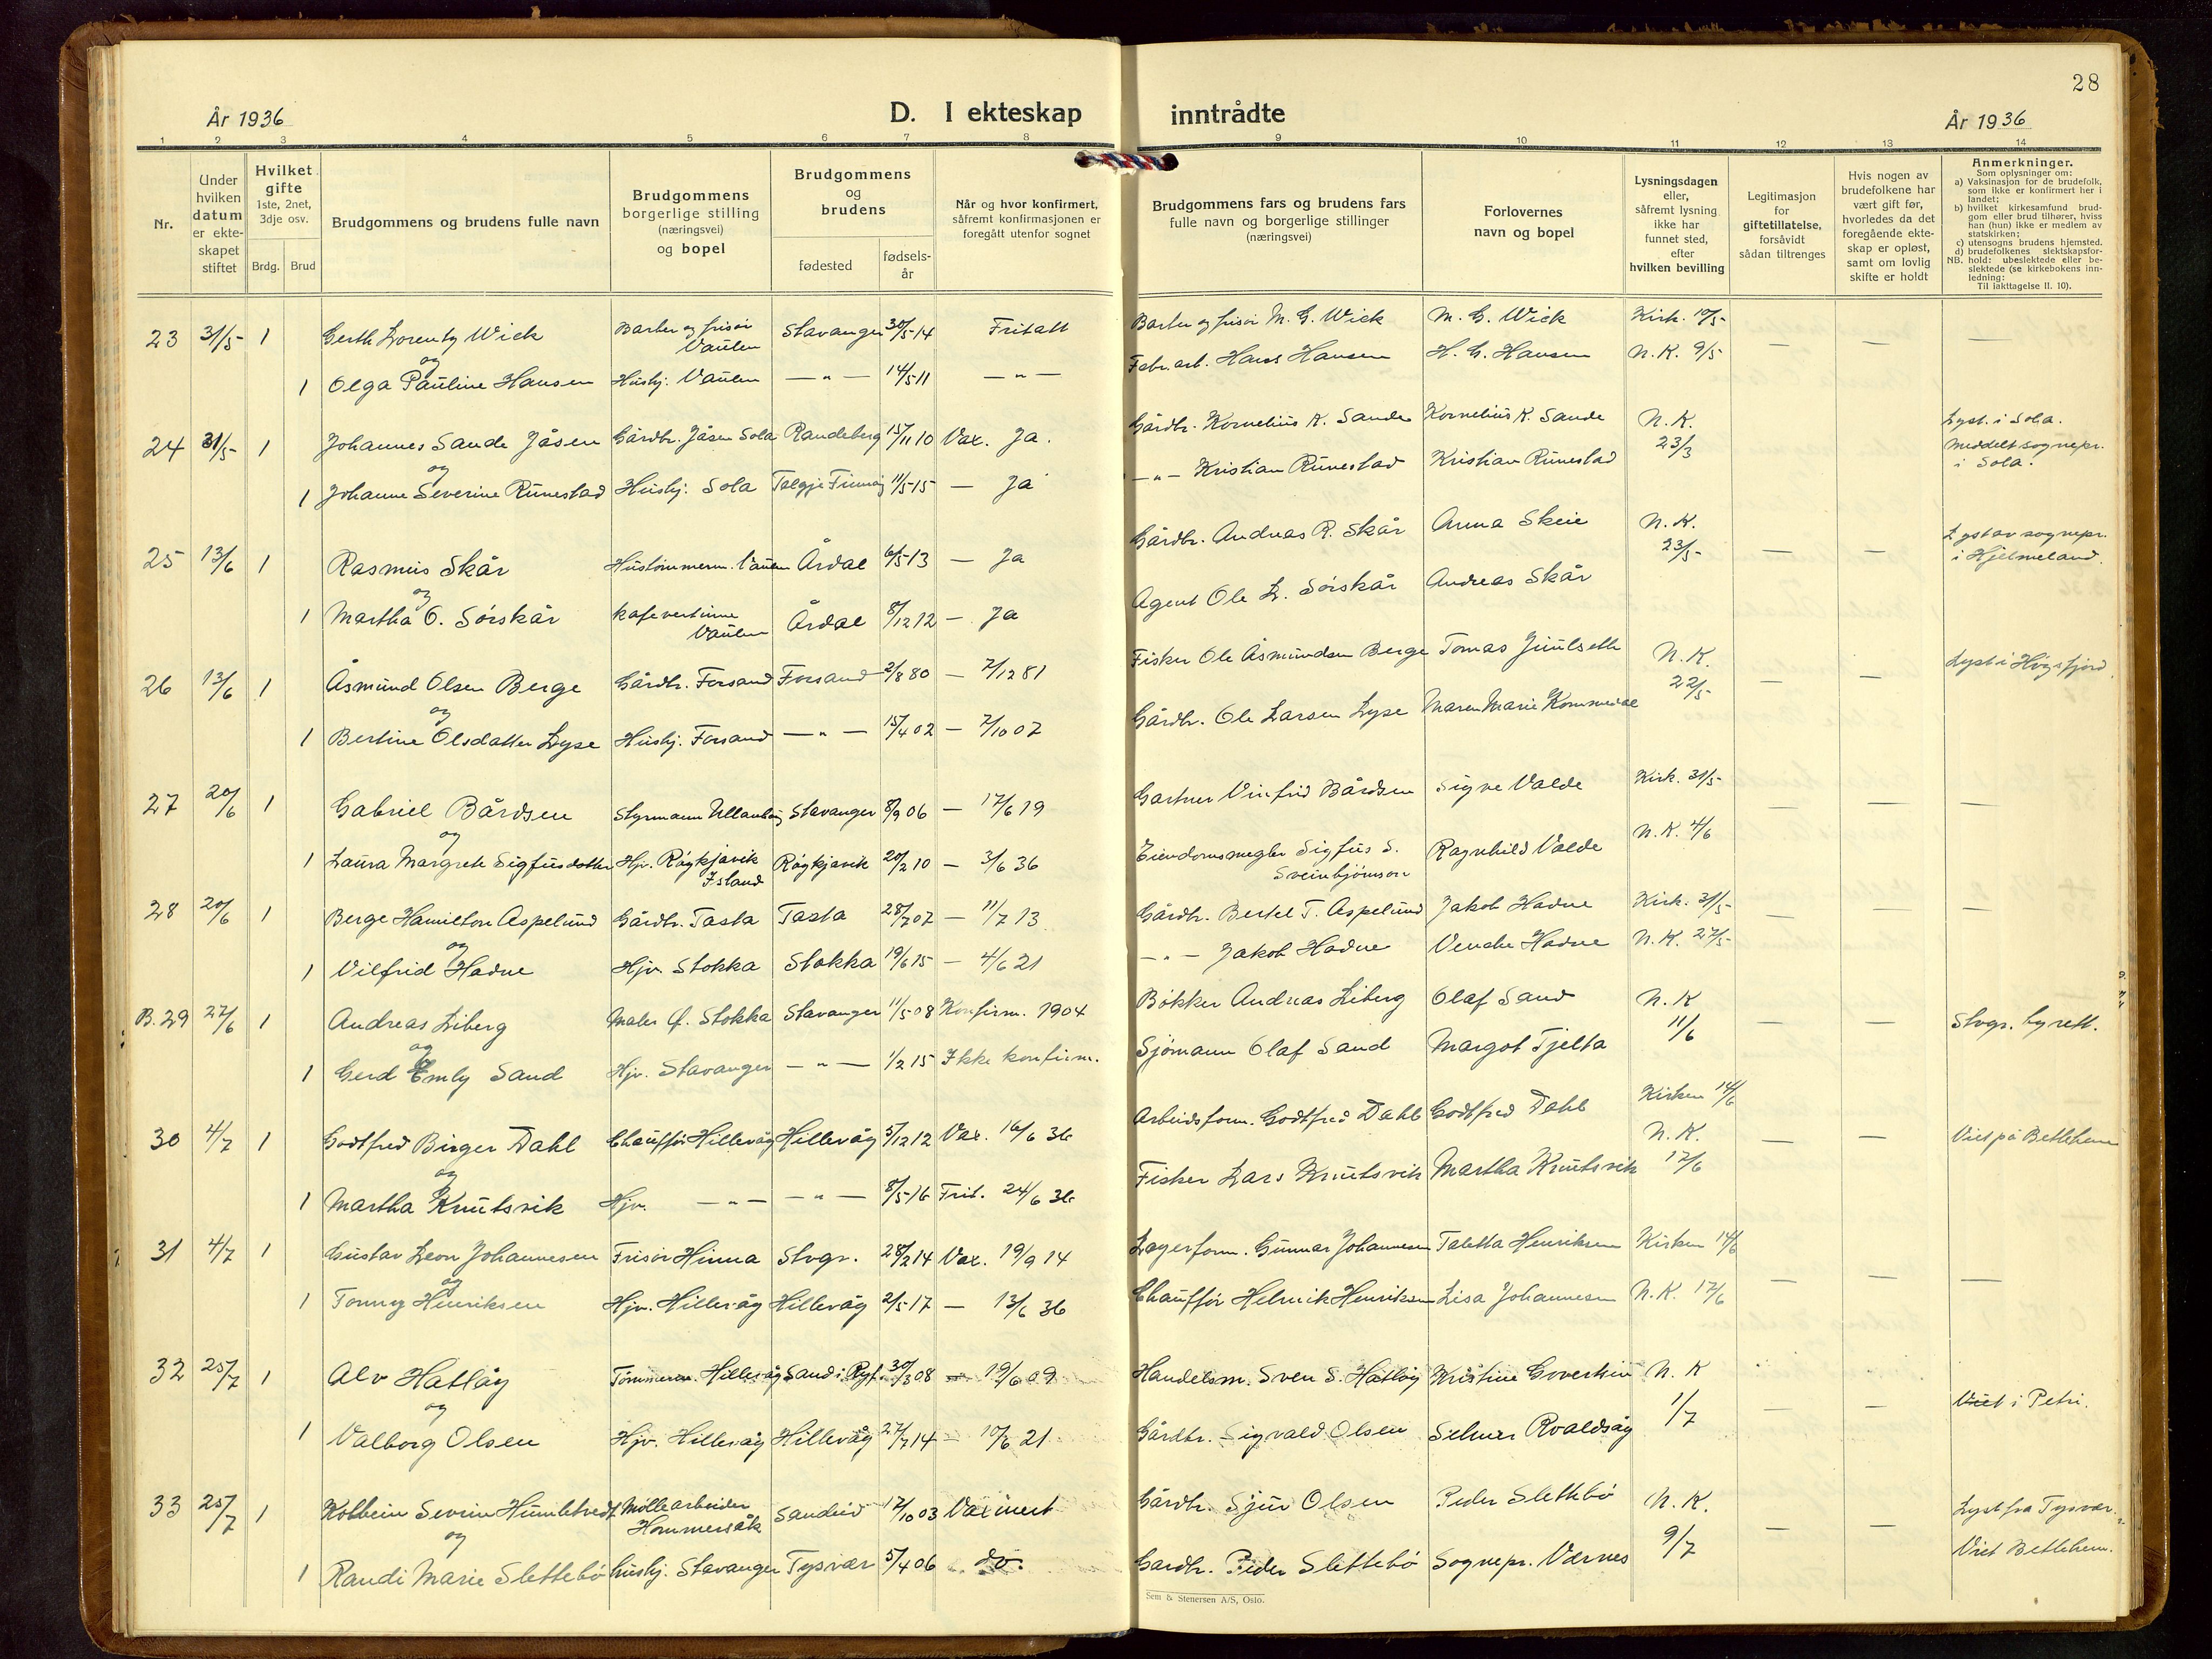 28
År 1936
D. I ekteskap inntrådte
År 1936
1 2 3 4 5 6 7 8 9 10 11 12 13 14
Nr.
Under hvilken datum er ekteskapet stiftet
Hvilket gifte 1ste, 2net, 3dje osv.
Brdg. Brud
Brudgommens og brudens fulle navn
Brudgommens borgerlige stilling (næringsvei) og bopel
Brudgommens og brudens
fødested
fødselsår
Når og hvor konfirmert, såfremt konfirmasjonen er foregått utenfor sognet
Brudgommens fars og brudens fars fulle navn og borgerlige stillinger (næringsvei)
Forlovernes navn og bopel
Lysningsdagen eller, såfremt lysning ikke har funnet sted, efter hvilken bevilling
Legitimasjon for giftetillatelse, forsåvidt sådan tiltrenges
Hvis nogen av brudefolkene har vært gift før, hvorledes da det foregående ekteskap er opløst, samt om lovlig skifte er holdt
Anmerkninger.
Som oplysninger om:
a) Vaksinasjon for de brudefolk, som ikke er konfirmert her i landet;
b) hvilket kirkesamfund brudgom eller brud tilhører, hviss han (hun) ikke er medlem av statskirken;
c) utensogns brudens hjemsted.
d) brudefolkenes slektskapsforhold: ubeslektede eller beslektede (se kirkebokens innledning:
NB. Til iakttagelse II. 10).
23 31/5 1 Gerth Lorentz Wick Barber og frisør Vaulen Stavanger 30/5 14 Fritatt Barber og frisør M. G. Wick M. G. Wick Kirk. 10/5 — — —
og
1 Olga Pauline Hansen Husbj. Vaulen — " — 14/5 11 — " — Fabr. arb. Hans Hansen H. G. Hansen N.K. 9/5
24 31/5 1 Johannes Sande Jåsen Gårdbr. Jåsen Sola Randeberg 15/11 10 Vax. Ja. Gårdbr. Kornelius K. Sande Kornelius K. Sande N.K. 23/3 Lyst. i Sola. Meddelt sognepr. i Sola.
og
1 Johanne Severine Runestad Husbj. Sola Talgje Finnøy 11/5 15 — Ja — " — Kristian Runestad Kristian Runestad
25 13/6 1 Rasmus Skår Hustømmerm. Vaulen Årdal 6/5 13 — Ja Gårdbr. Andreas R. Skår Anna Skeie N.K. 23/5 — — Lyst av sognepr. i Hjelmeland.
og
1 Martha O. Sørskår Kafevertinne Vaulen Årdal 8/12 12 — Ja Agent Ole L. Sørskår Andreas Skår
26 13/6 1 Åsmund Olsen Berge Gårdbr. Forsand Forsand 2/8 80 — 7/12 81 Fisker Ole Åsmundsen Berge Tomas N.K. 22/5 — — Lyst i Høgsfjord.
og
1 Bertine Olsdatter Lyse Husbj. Forsand — " — 15/4 02 — 7/10 07 Gårdbr. Ole Larsen Lyse Maren Marie Kommedal
27 20/6 1 Gabriel Bårdsen Styrmann Ullandhaug Stavanger 8/9 06 — 17/6 19 Gartner Vinfrid Bårdsen Sigve Valde Kirk. 31/5 — — —
og
1 Laura Margrete Sigfusdotter Hjv. Røykjavik Island Røykjavik 20/2 10 — 3/6 36 Eiendomsmegler Sigfus S. Sveinbjørnson Ragnhild Valde N.K. 4/6
28 20/6 1 Berge Hamilton Aspelund Gårdbr. Tasta Tasta 28/7 07 — 11/7 13 Gårdbr. Bertel T. Aspelund Jakob Hadne Kirk. 31/5 — — —
og
1 Vilfrid Hadne Hjv. Stokka Stokka 19/6 15 — 4/6 21 — " — Jakob Hadne Venche Hadne N.K. 27/5
B. 29 27/6 1 Andreas Liberg Maler Ø. Stokka Stavanger 11/5 08 Konfirm. 1904 Bøkker Andreas Liberg Olaf Sand N.K 11/6 — — Stvgr. byrett.
og
1 Gerd Emly Sand Hjv. Stavanger — " — 1/2 15 Ikke konfirm. Sjømann Olaf Sand Margot Tjelta
30 4/7 1 Godtfred Birger Dahl Chauffør Hillevåg Hillevåg 5/12 12 Vax. 16/6 36 Arbeidsform. Godtfred Dahl Godtfred Dahl Kirken 14/6 N.K. 17/6 — — Viet på Betlehem
og
1 Martha Knutsvik Hjv. — " — — " — 8/5 16 Frit. 24/6 36 Fisker Lars Knutsvik Martha Knutsvik
31 4/7 1 Gustav Leon Johannesen Frisør Hinna Stvgr. 28/2 14 Vax. 19/9 14 Lagerform. Gunnar Johannesen Taletta Henriksen Kirken 14/6 — — —
og
1 Tonny Henriksen Hjv. Hillevåg Hillevåg 2/5 17 — 13/6 36 Chauffør Helmik Henriksen Lisa Johannesen N.K. 17/6
32 25/7 1 Alv Hatløy Tømmerm. Hillevåg Sand i Ryf. 30/3 08 — 19/6 09 Handelsm. Sven S. Hatløy Kristine N.K 1/7 — — Viet i Petri.
og
1 Valborg Olsen Hjv. Hillevåg Hillevåg 27/7 14 — 10/6 21 Gårdbr. Sigvald Olsen Selmer Roaldsøy
33 25/7 1 Kolbein Severin Humletvedt Møllearbeider Hommersåk Sandeid 17/10 03 Vaxinert Gårdbr. Sjur Olsen Peder Slettebø N.K. 9/7 — — Lyst fra Tysvær.
og
1 Randi Marie Slettebø Husbj. Stavanger Tysvær 5/4 06 do. Gardbr. Peder Slettebø Sognepr. Værnes Viet Betlehem.
Sem & Stenersen A/S, Oslo.